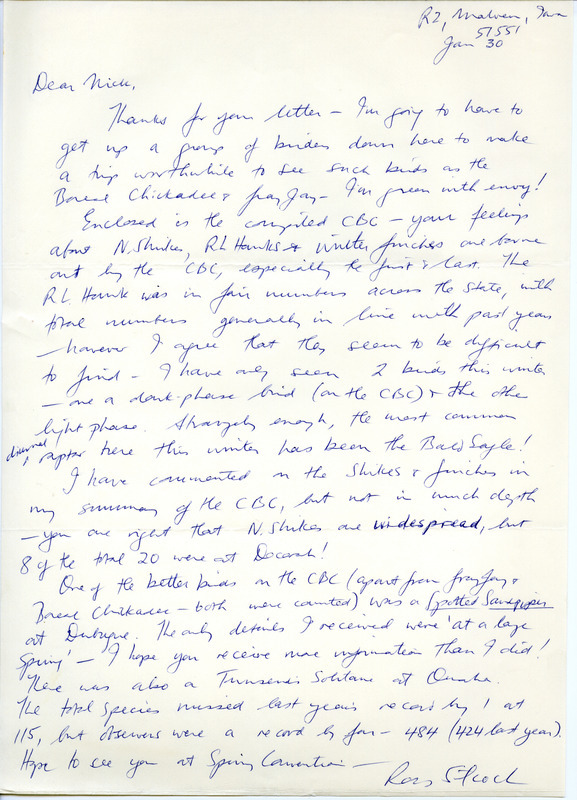 R2, Malvern, Iowa
51551
Jan 30
Dear Nick,
Thanks for your letter – I'm going to have to
get up a group of birders down here to make
a trip worthwhile to see such birds as the
Boreal Chickadee & Gray Jay – I'm green with envy!
Enclosed is the compiled CBC – your feelings
about N. Shrikes, RL Hawks & winter finches are borne
out by the CBC, especially the first & last. The
RL Hawk was in fair numbers across the state, with
total numbers generally in line with past years
– however I agree that they seem to be difficult
to find – I have only seen 2 birds this winter
– one a dark-phase bird (on the CBC) & the other
light phase. Strangely enough, the most common
diurnal
raptor here this winter has been the Bald Eagle!
I have commented on the Shrikes & finches in
my summary of the CBC, but not in much depth
– you are right that N. Shrikes are widespread, but
8 of the total 20 were at Decorah!
One of the better birds on the CBC (apart from Gray Jay &
Boreal Chickadee – both were counted) was a Spotted Sandpiper
at Dubuque. The only details I received were 'at a large
Spring' – I hope you receive more information than I did!
There was also a Townsend's Solitaire at Omaha.
The total species missed last year's record by 1 at
115, but observers were a record by far – 484 (424 last year).
Hope to see you at Spring Convention –
Ross Silcock